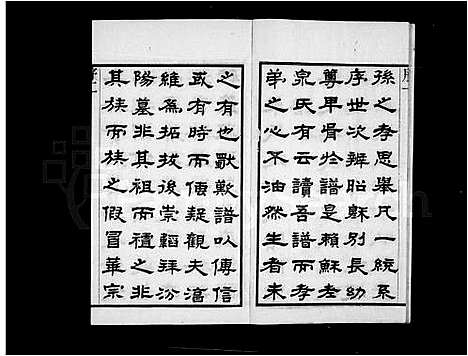 孫之孝思舉凡一統系
序世次辨昭穆別長幼
尊卑胥於譜是賴蘇老
泉氏有云讀吾譜而孝
弟之心不油然生者未
之有也歐譜以傳信
或有時而傳疑觀夫
維為拓拔後崇韜拜汾
陽墓非其祖而禮之非
其族而族之假冒華宗